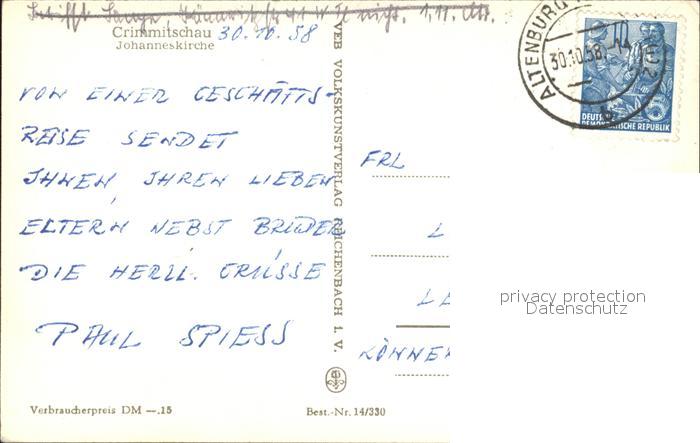 Crimmitschau 30.10.58
Johanneskirche
VON EINER GESCHÄFTS-
REISE SENDET
IHNEN, IHREN LIEBEN
ELTERN NEBST BRUDER
DIE HERZL. GRÜSSE
PAUL SPIESS
Verbraucherpreis DM —.15
VEB VOLKSKUNSTVERLAG REICHENBACH I. V.
Best.-Nr. 14/330
ALTENBURG
30.10.58
10
DEUTSCHE
DEMOKRATISCHE REPUBLIK
FRL
L
LE
KÖNNE
privacy protection
Datenschutz